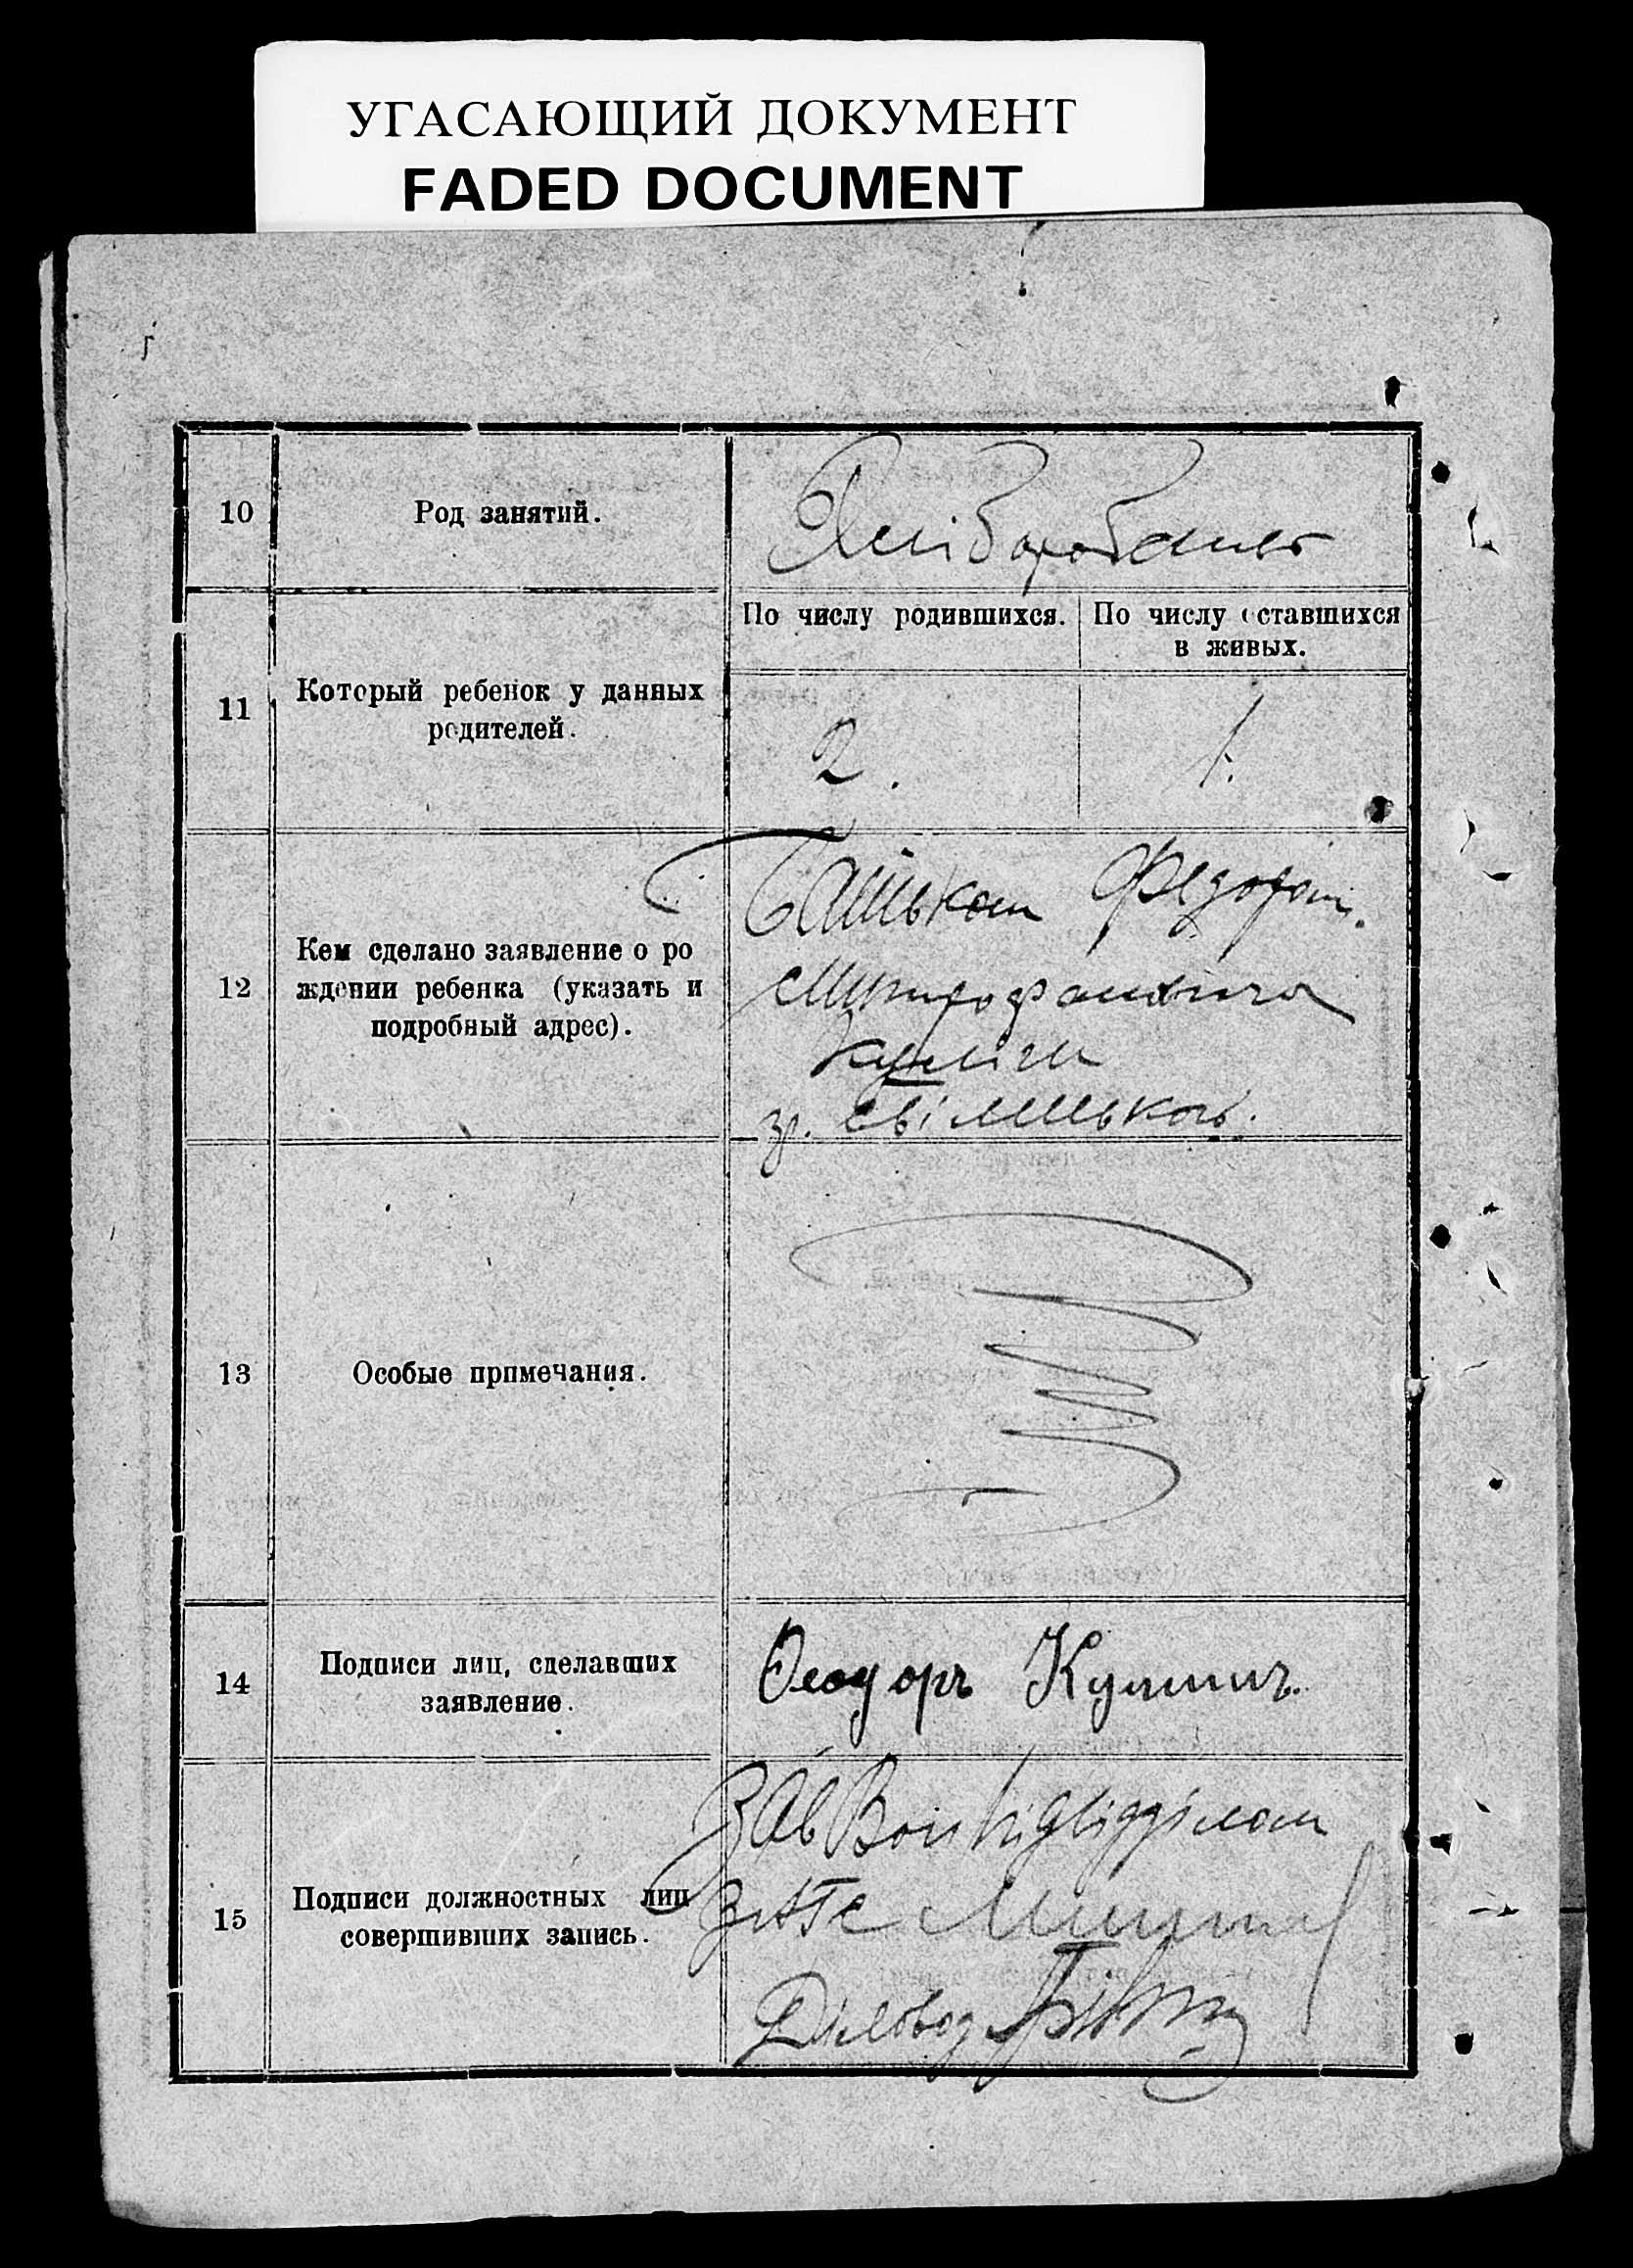 УГАСАЮЩИЙ ДОКУМЕНТ
FADED DOCUMENT
10
Род занятий.
Хліборобство
11
Который ребенок у данных
родителей.
По числу родившихся.
По числу оставшихся
в живых.
2.
1.
12
Кем сделано заявление о ро
ждении ребенка (указать и
подробный адрес).
Батьком Федором
Митрофановича
Куліш
гр.
13
Особые примечания.
14
Подписи лиц, сделавших
заявление.
Ѳеодоръ Кулишъ.
15
Подписи должностных лиц
совершивших запись.
Зав підвідділом
ЗАГС
Діловод